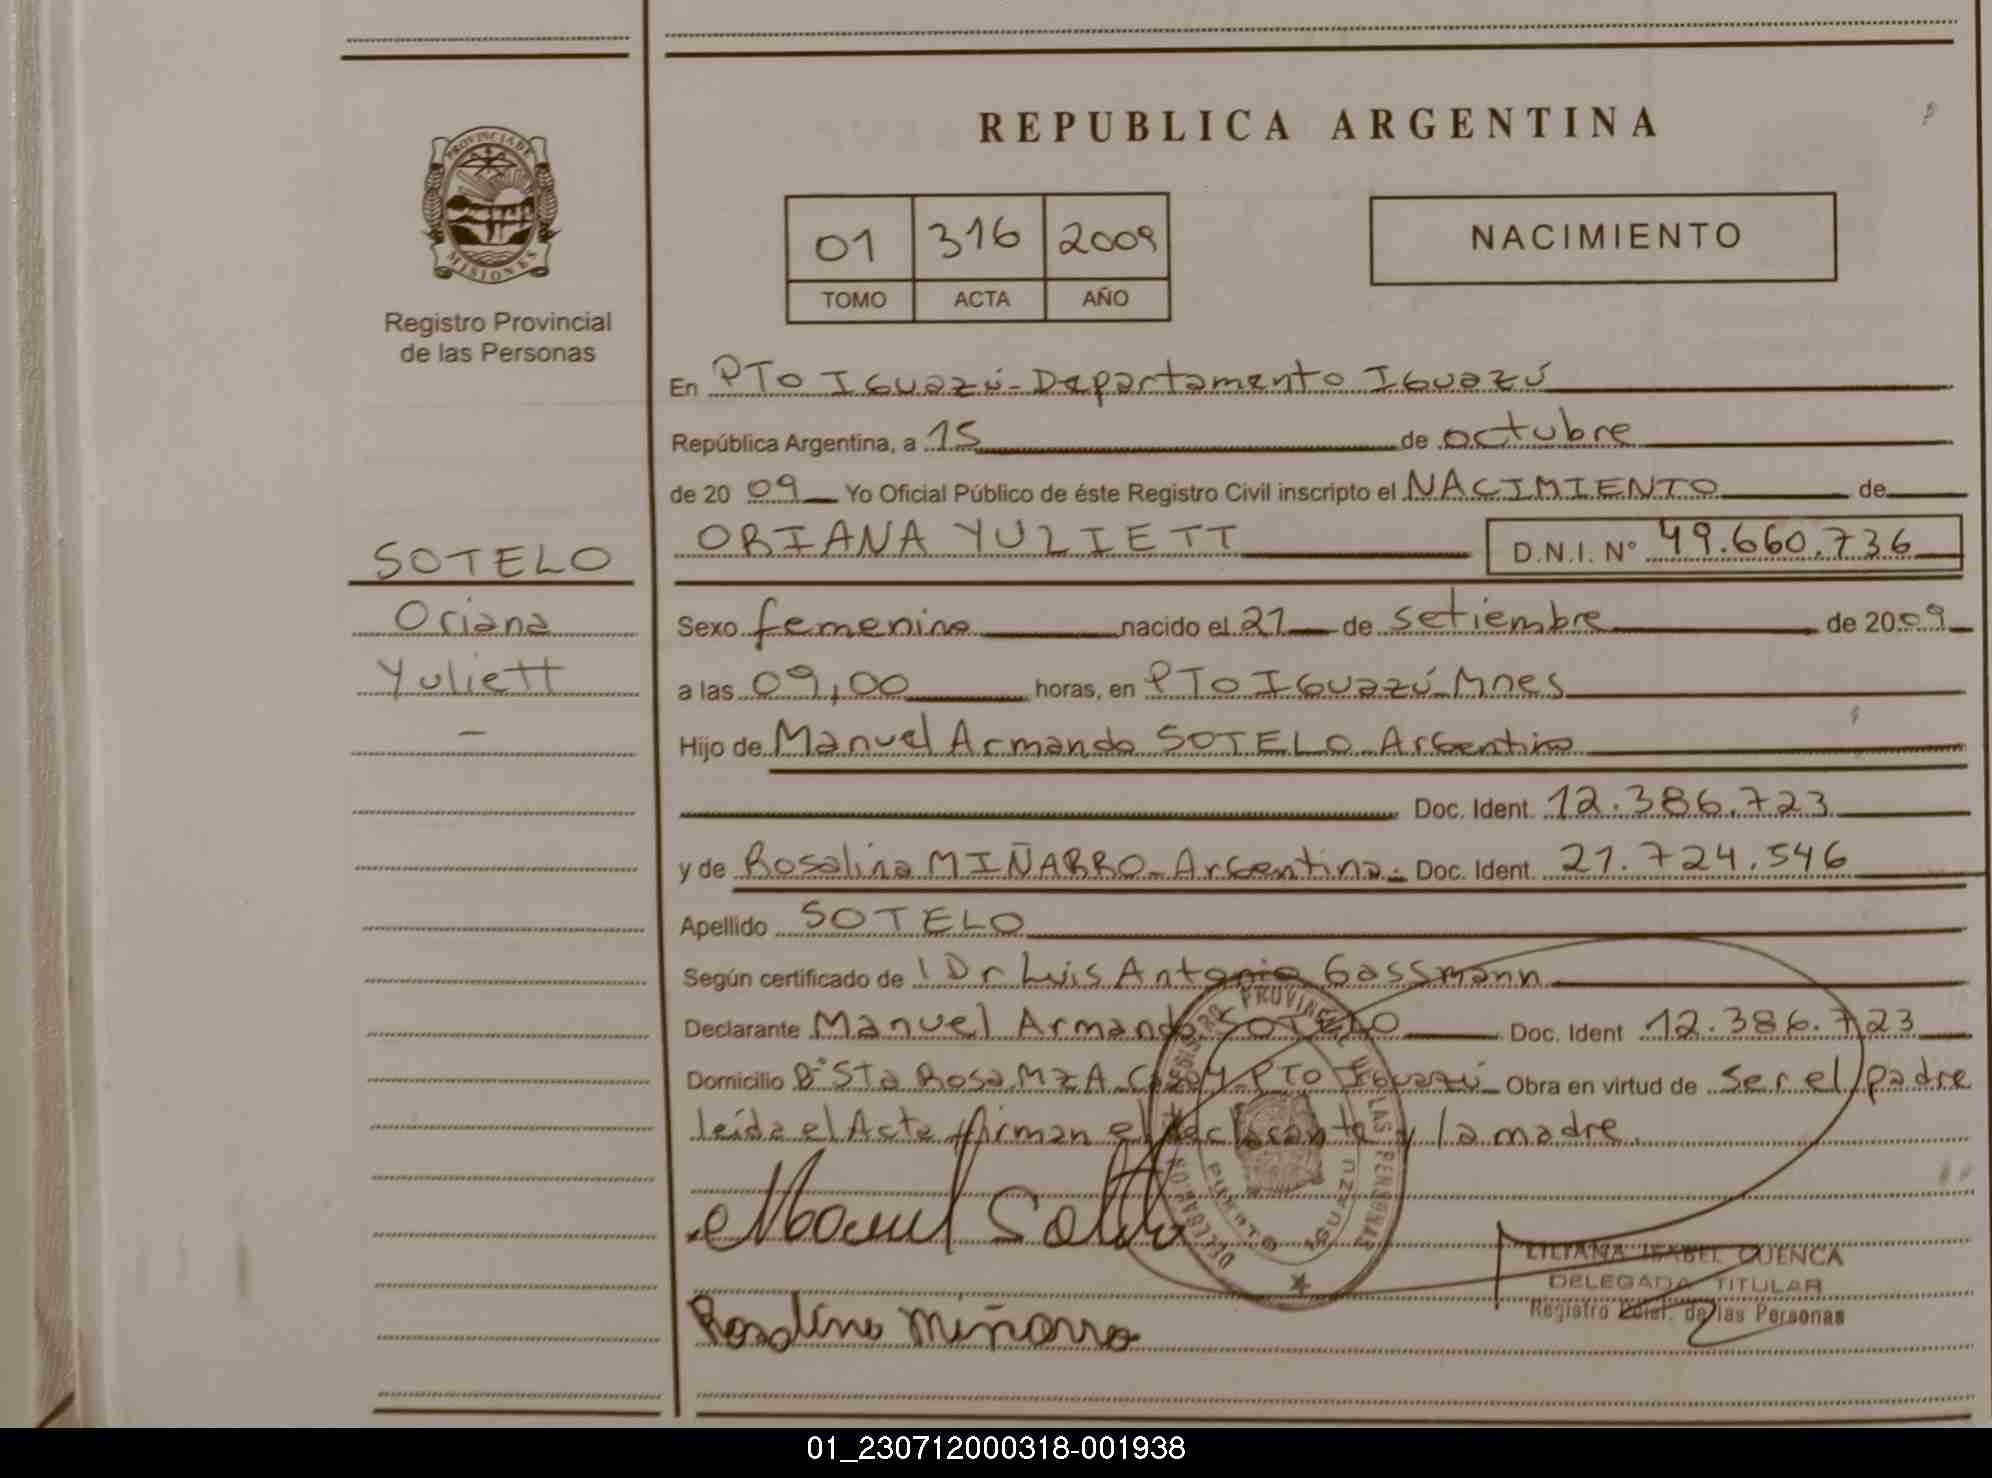 REPUBLICA ARGENTINA
PROVINCIA DE MISIONES
Registro Provincial
de las Personas
01 316 2009
TOMO ACTA AÑO
NACIMIENTO
En PTo Iguazú - Departamento Iguazú
República Argentina, a 15 de octubre
de 2009 Yo Oficial Público de éste Registro Civil inscripto el NACIMIENTO de
SOTELO
Oriana
Yuliett
-
ORIANA YULIETT D.N.I. Nº 49.660.736
Sexo femenino nacido el 21 de setiembre de 2009
a las 09,00 horas, en PTo Iguazú - Mnes
Hijo de Manuel Armando SOTELO - Argentino
Doc. Ident. 12.386.723
y de Rosalina MIÑARRO - Argentina. Doc. Ident. 21.724.546
Apellido SOTELO
Según certificado de Dr Luis Antonio Gassmann
Declarante Manuel Armando SOTELO Doc. Ident 12.386.723
Domicilio Bº Sta Rosa MZ A PTo Iguazú Obra en virtud de ser el padre
leída el Acta firman el declarante y la madre.
Manuel Sotelo
REGISTRO PROVINCIAL DE LAS PERSONAS
DELEGACION
PUERTO IGUAZU
LILIANA ISABEL CUENCA
DELEGADA TITULAR
Registro de las Personas
Rosalina Miñarro
01_230712000318-001938